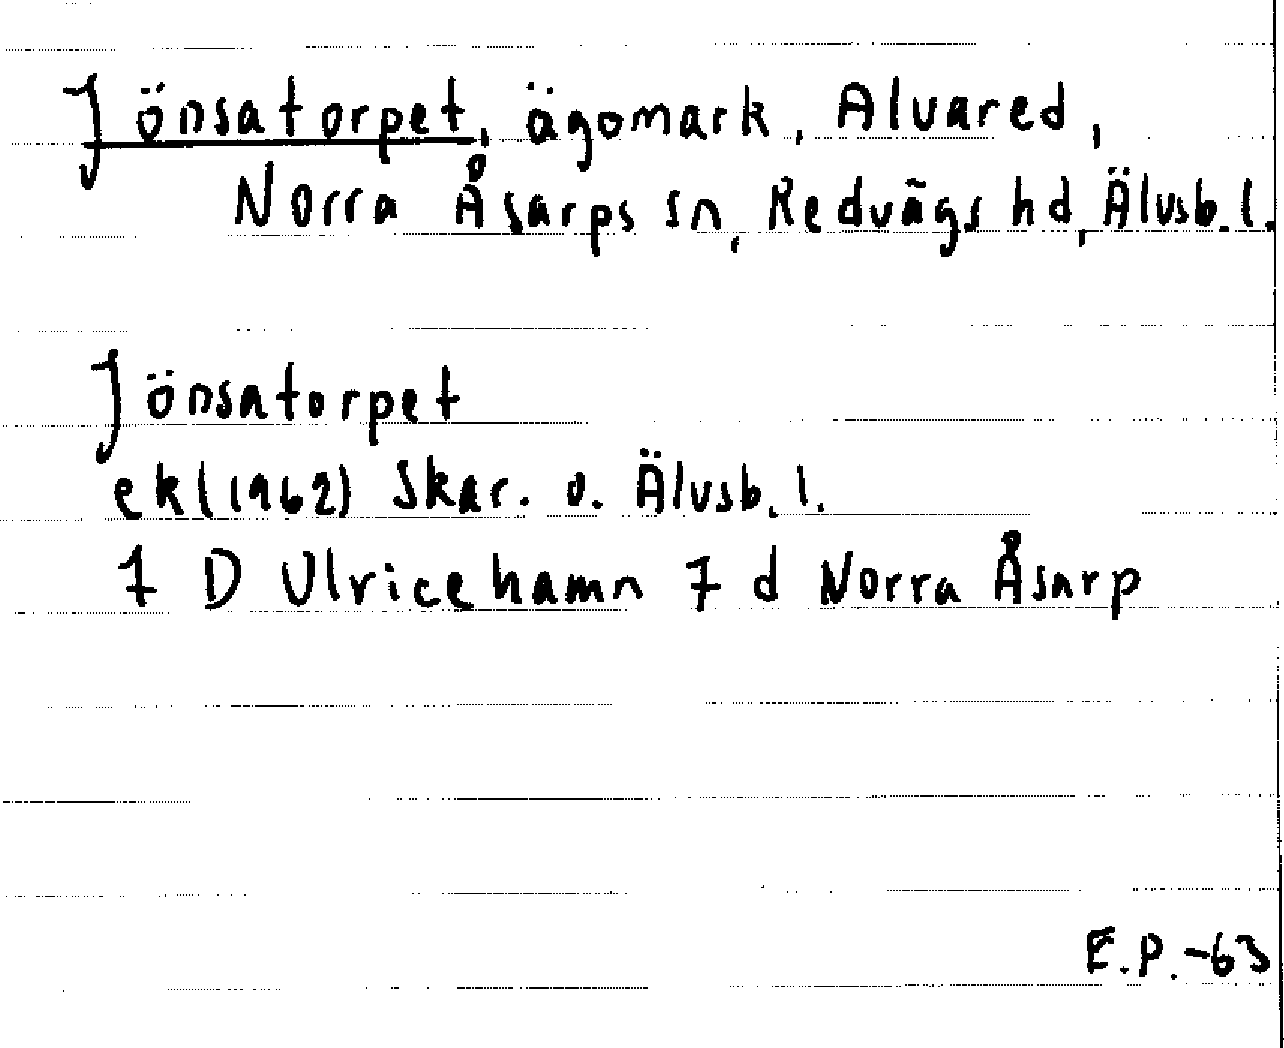 Jönsatorpet, ägomark, Alvared,
Norra Åsarps sn, Redvägs hd, Älvsb.l.
Jönsatorpet
ekl(1962) Skar. o. Älvsb.l.
7 D Ulricehamn 7 d Norra Åsarp
E.P.-63